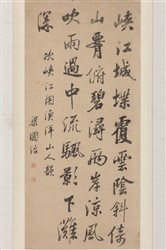 峡江城堞覆雲陰斜倚
山㟁俯碧潯兩岸涼風
吹雨過中流颿影下灘
深
次峽江用漁洋山人韻
梁國治